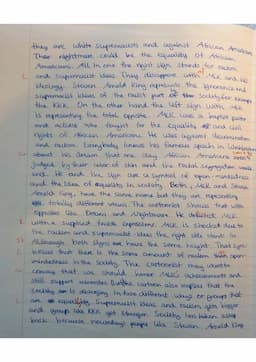 they are white supremacists and against African Americans
Their nightmare could be the equality of African
Americans. All in one the right sign stands for racism
and supremacist ideas. They disagree with MLK and his
ideology. Steven Arnold King represents the ignorance and
supremacist ideas of the racist part of the society for example
the KKK. On the other hand the left sign with MLK
is representing the total opposite. MLK was a baptist pastor
and activist who fought for the equality and civil
rights of African Americans. He was against discrimination
and racism. Everybody knows his famous speech in Washington
about his dream that one day African Americans
judged by their color of skin and the racial segregation would
end. He and the sign are a symbol of open-mindedness
and the idea of equality in society. Both, MLK and Steven
Arnold King, have the same name but they are representing
totally different views. The cartoonist shows that with
opposites like Dream and Nightmare. He depicted MLK
with a surprised facial expression. MLK is shocked due to
the racism and supremacist ideas the right side stands for
Although both signs have the same height. That
that there is the same amount of racism open-
mindedness in the society. The cartoonist may want to
convey that we should honor MLK's achievements and
still support minorities. But the cartoon also implies that the
society is in two different ways or groups that
are equality. Supremacist ideas and racism gets bigger
and groups like KKK get stronger. Society has taken step
back because nowadays people like Steven Arnold King